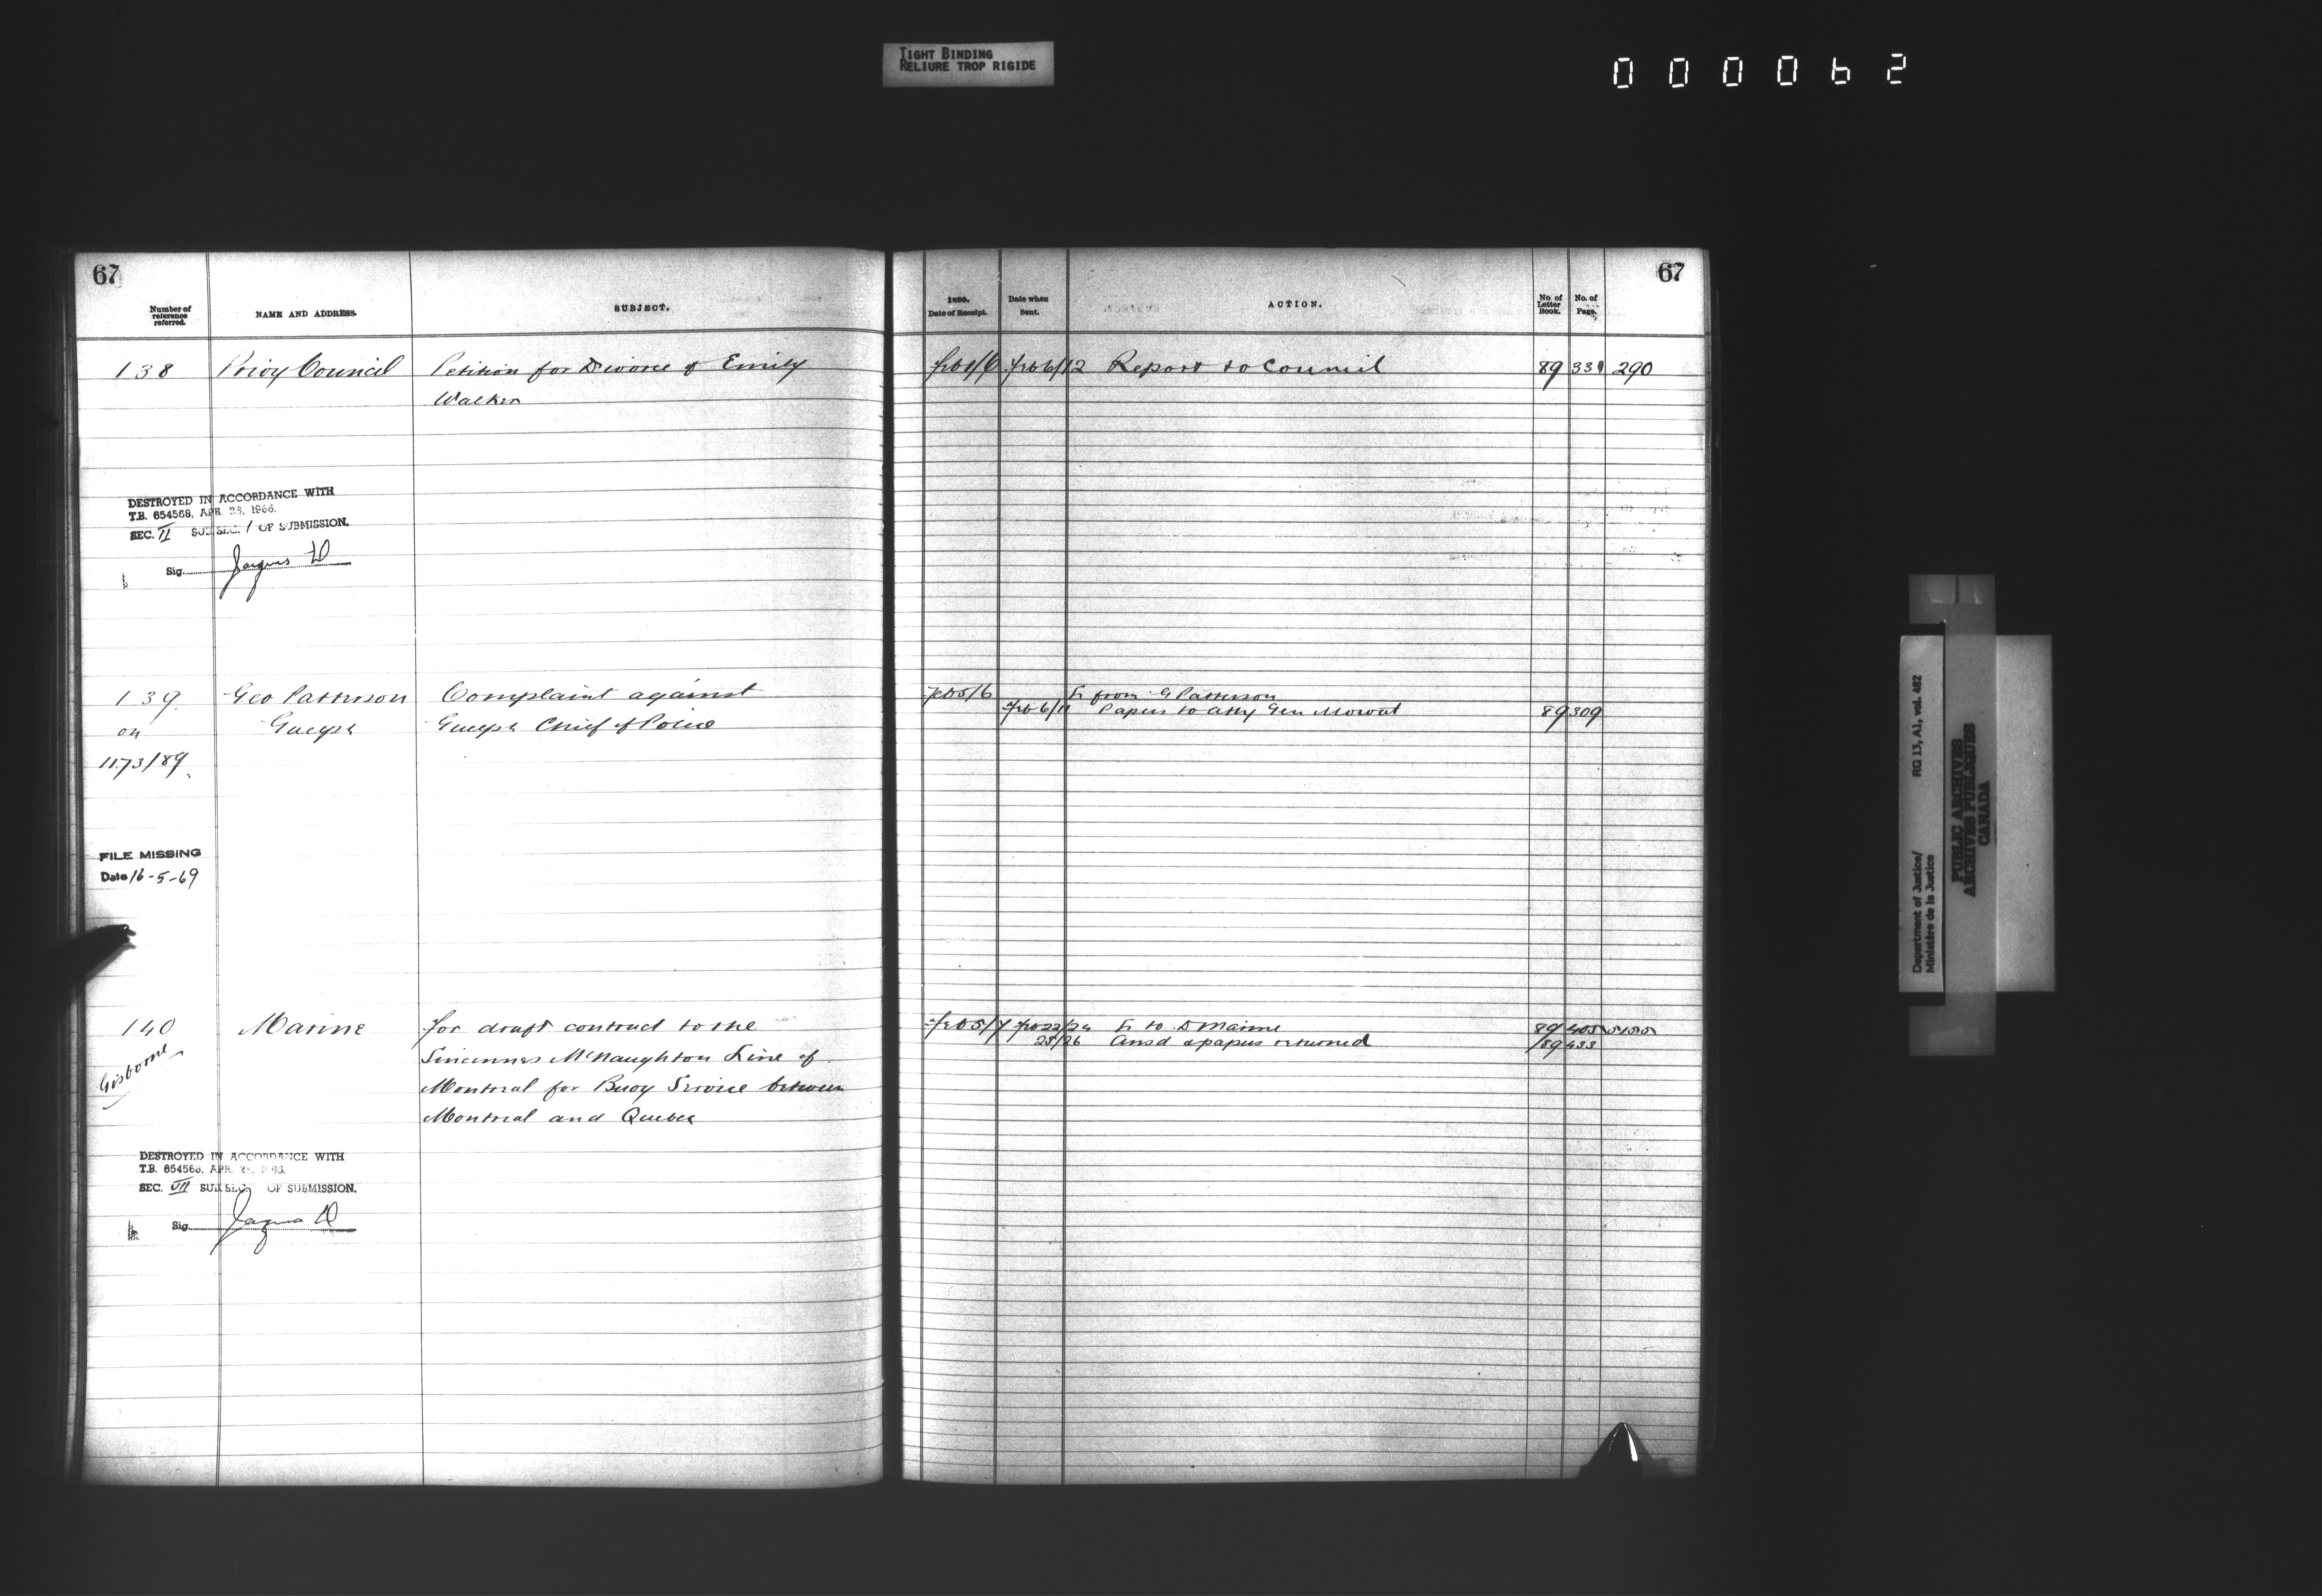 TIGHT BINDING
RELIURE TROP RIGIDE
0 0 0 0 6 2
67
Number of reference referred.
NAME AND ADDRESS.
SUBJECT.
138
Privy Council
Petition for Divorce of Emily
Walker
DESTROYED IN ACCORDANCE WITH
T.B. 654568, APR. 28, 1966.
SEC. II SUB SEC. 1 OF SUBMISSION.
Sig.
139
Geo Patterson
Complaint against
on
Guelph
Guelph Chief of Police
1173/89
FILE MISSING
Date 16-5-69
140
Marine
for draft contract to the
Gisborne
Sincennes McNaughton Line of
Montreal for Buoy Service between
Montreal and Quebec
DESTROYED IN ACCORDANCE WITH
T.B. 654568, APR.
SEC. VII SUB SEC. OF SUBMISSION.
Sig.
67
1890.
Date of Receipt.
Date when Sent.
ACTION.
No. of Letter Book.
No. of Page.
Feb 6/12 Report to Council 89 331 290
Feb 5/6 L from G Patterson
Feb 6/11 Papers to Atty Gen Mowat 89 309
Feb 5/7 Feb 22/24 L to D Marine 89 405
25/26 Ansd & papers returned 89 433
Department of Justice/
Ministère de la Justice
RG 13, A1, vol. 482
PUBLIC ARCHIVES
ARCHIVES PUBLIQUES
CANADA